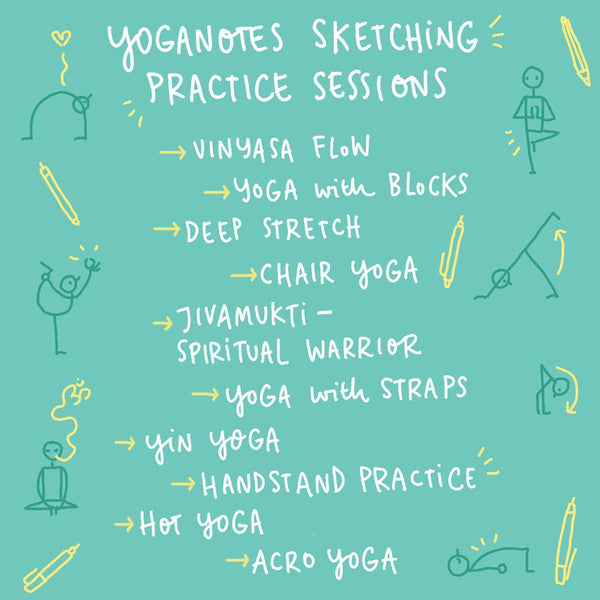 YOGANOTES SKETCHING
PRACTICE SESSIONS
→ VINYASA FLOW
→ YOGA with BLOCKS
→ DEEP STRETCH
→ CHAIR YOGA
→ JIVAMUKTI –
SPIRITUAL WARRIOR
→ YOGA with STRAPS
→ YIN YOGA
→ HANDSTAND PRACTICE
→ HOT YOGA
→ ACRO YOGA
ॐ